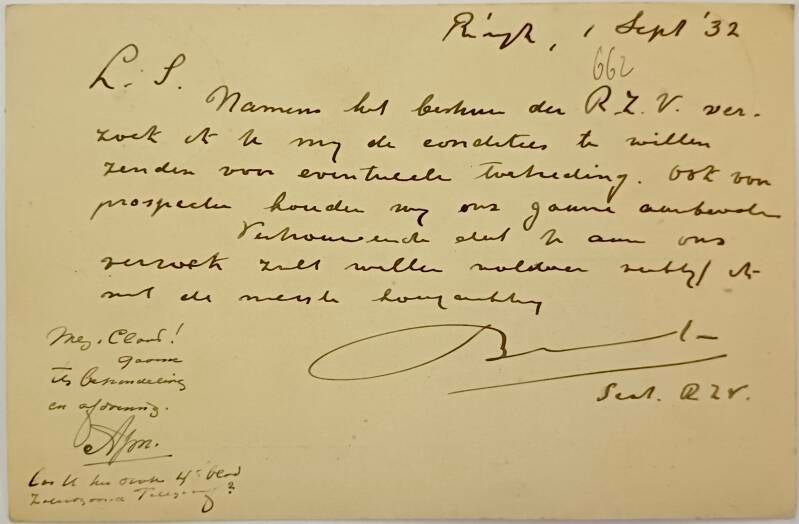 Rijk, 1 Sept '32
662
L. S.
Namens het bestuur der R.Z.V. ver-
zoek ik U mij de condities te willen
zenden voor eventueele toetreding. Ook voor
prospectie houden wij ons gaarne aanbevolen
Vertrouwende dat U aan ons
verzoek zult willen voldoen verblijf ik
met de meeste hoogachting
Secr. R.Z.V.
Mej. Claas!
gaarne
ter behandeling
en afdoening.
4e blad